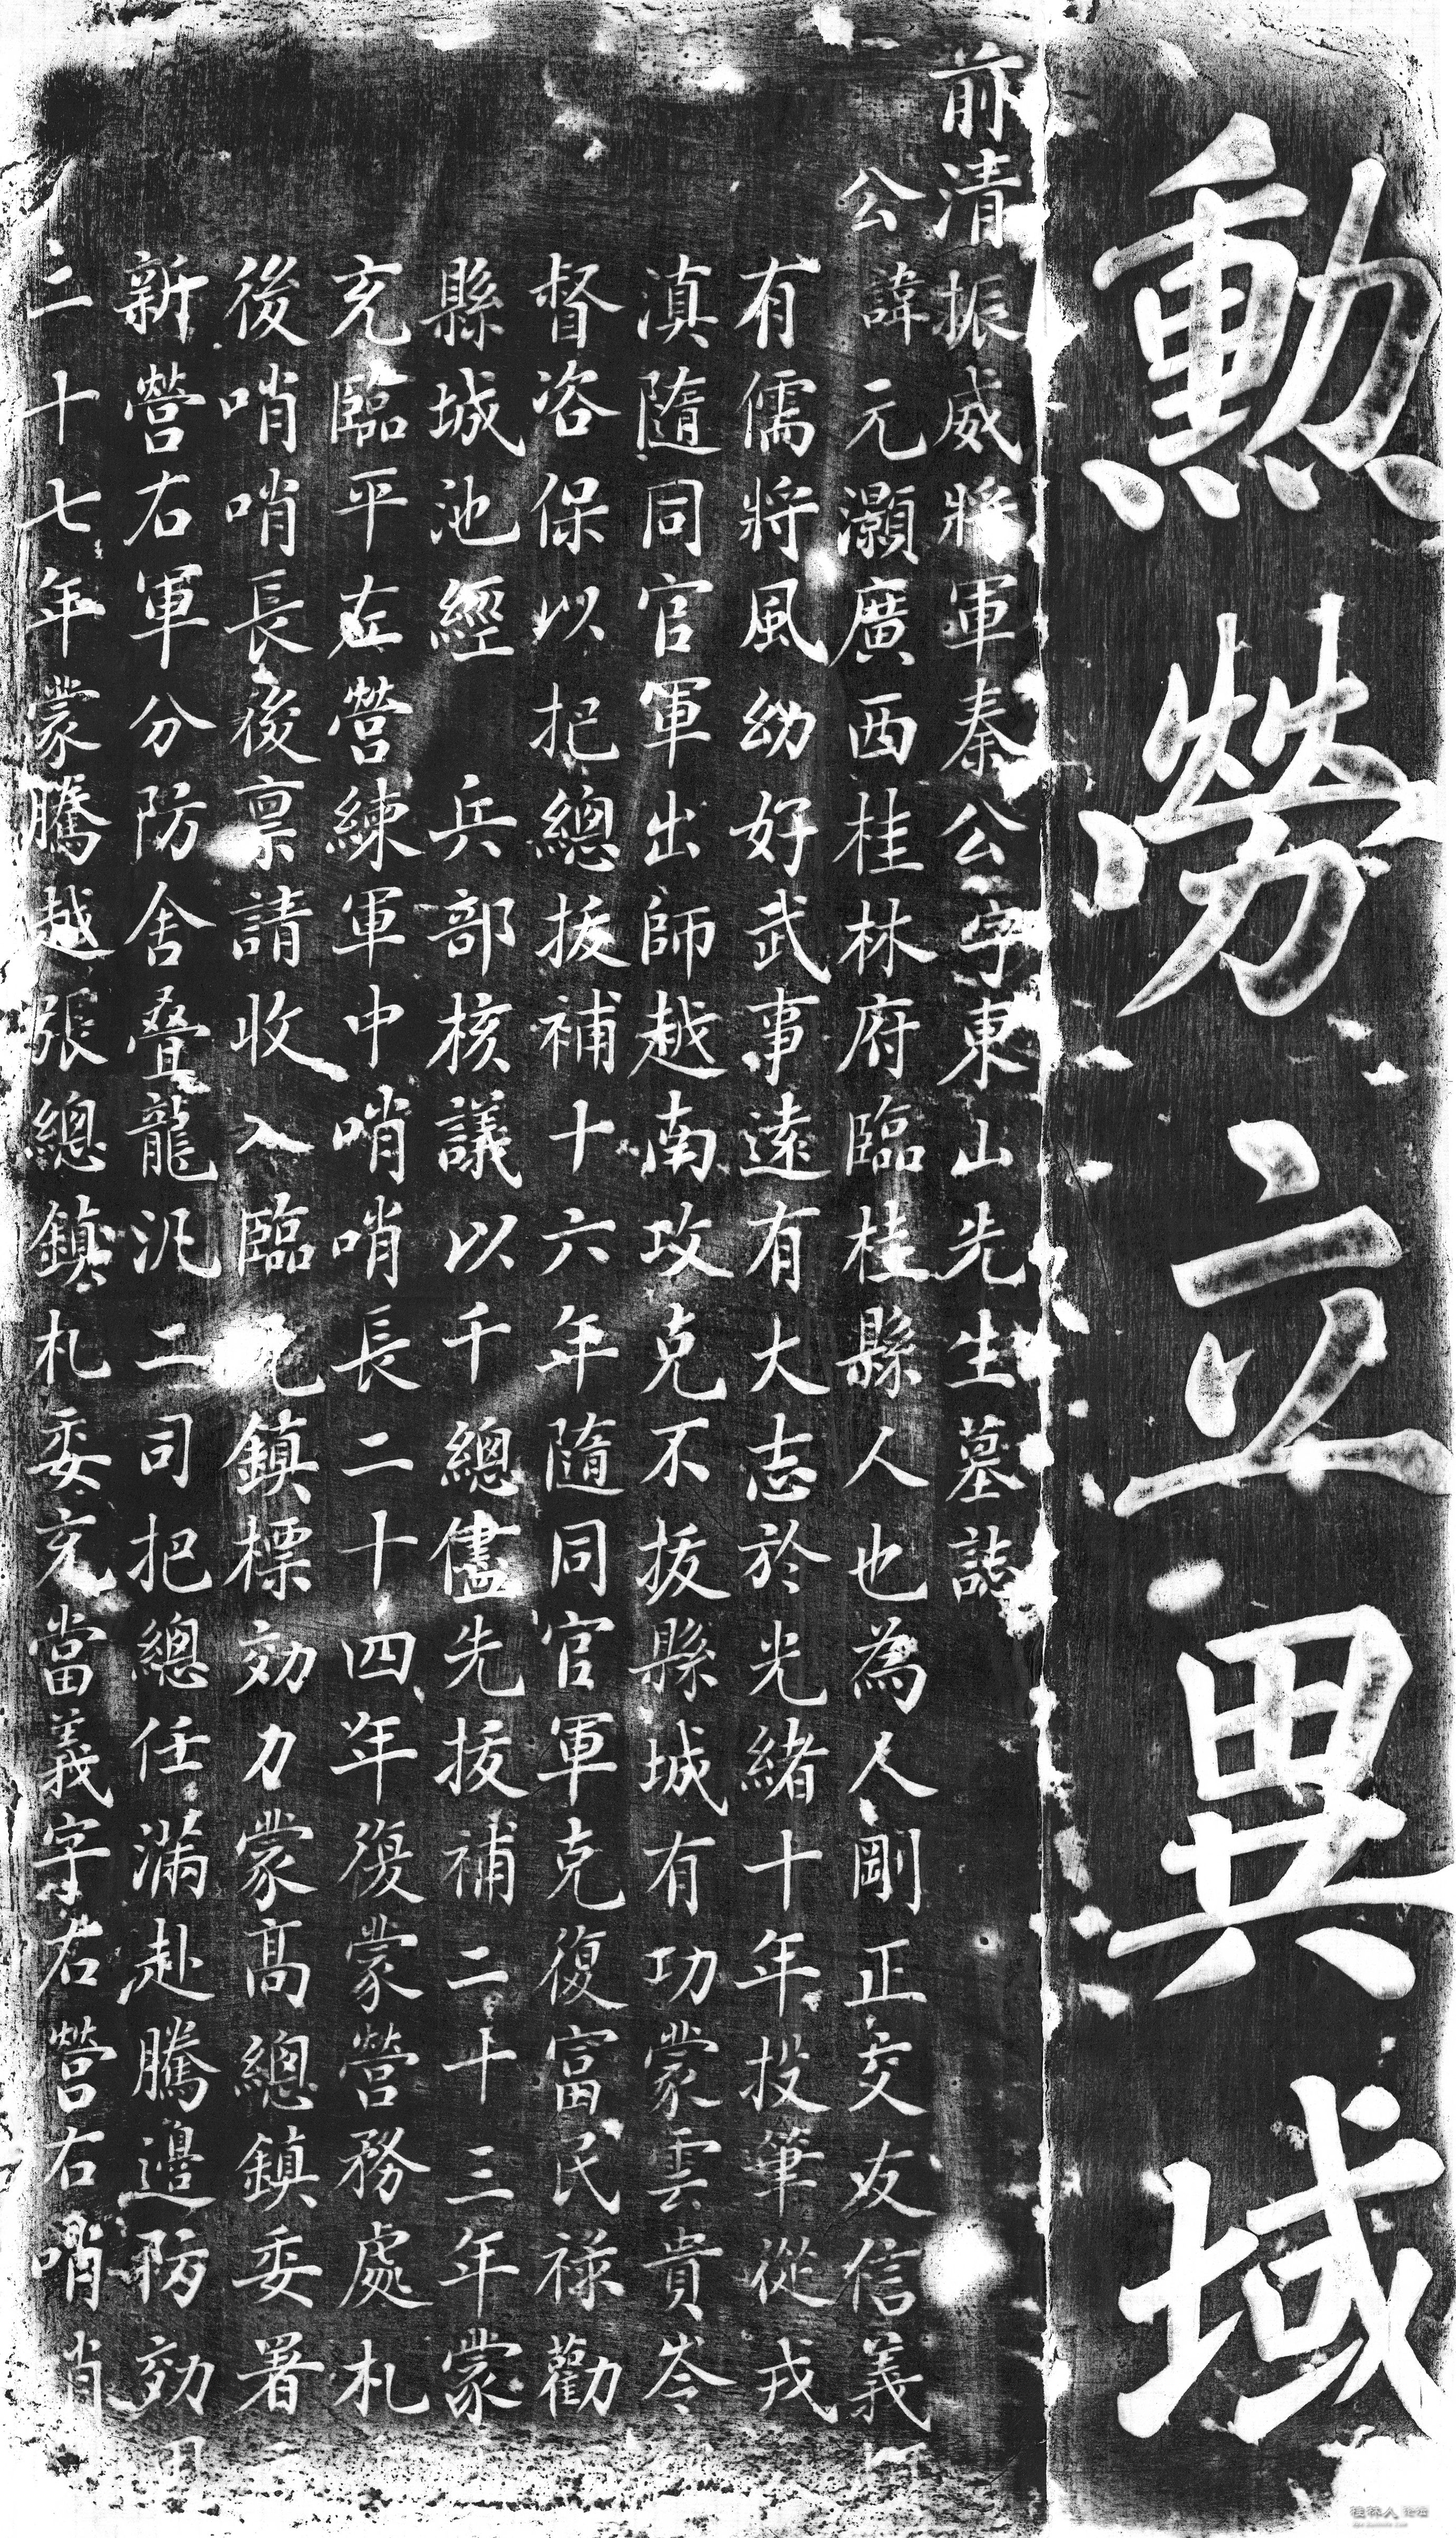 勲勞立異域
前清振威將軍秦公字東山先生墓誌
公諱元灝廣西桂林府臨桂縣人也為人剛正交友信義
有儒將風幼好武事遠有大志於光緒十年投筆從戎
滇隨同官軍出師越南攻克不拔縣城有功蒙雲貴岑
督咨保以把總拔補十六年隨同官軍克復富民祿勸
縣城池經兵部核議以千總儘先拔補二十三年蒙
充臨平左營練軍中哨哨長二十四年復蒙營務處札
後哨哨長後禀請收入臨元鎮標効力蒙高總鎮委署
新營右軍分防舍叠龍汛二司把總任滿赴騰邊防効
二十七年蒙騰越張總鎮札委充當義字右營右哨哨
桂林人论坛